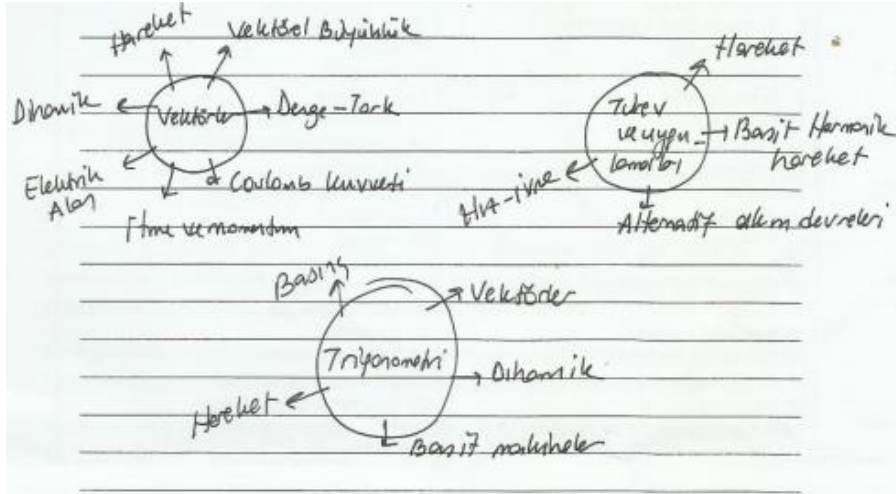 Hareket
Vektörel Büyüklük
Dinamik
Vektörler
Denge-Tork
Elektrik
Alan
Coulomb kuvveti
İtme ve momentum
Hareket
Türev
ve uygu-
lamaları
Basit Harmonik
hareket
Hız-ivme
Alternatif akım devreleri
Basınç
Vektörler
Trigonometri
Dinamik
Hareket
Basit makineler